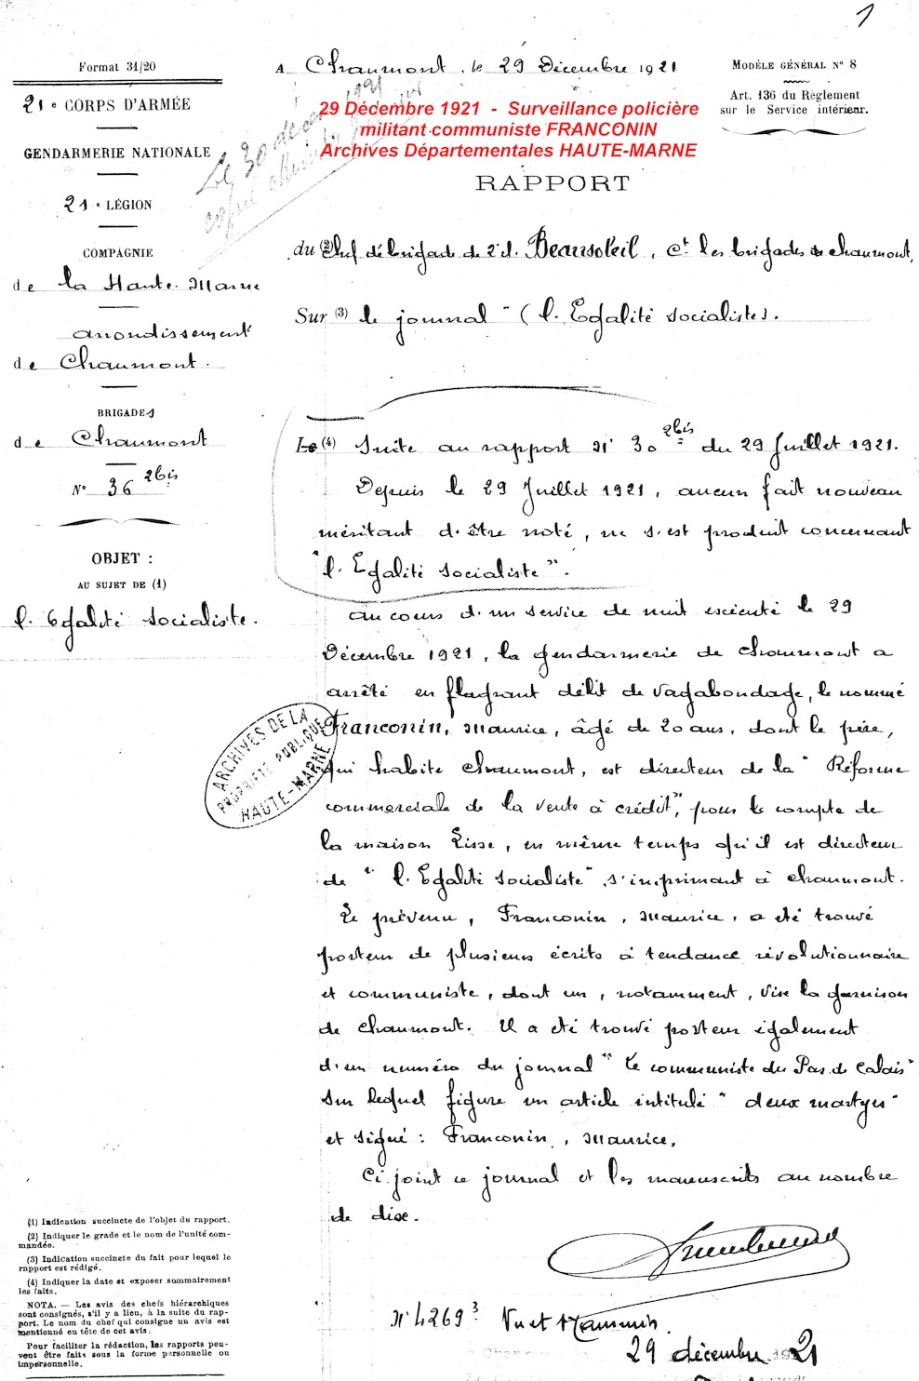 1
Format 31/20
21e CORPS D'ARMÉE
GENDARMERIE NATIONALE
21e LÉGION
COMPAGNIE
de la Haute-Marne
arrondissement
de Chaumont.
BRIGADES
de Chaumont
N° 36 2bis
OBJET :
AU SUJET DE (1)
l'Egalité socialiste.
A Chaumont, le 29 Décembre 1921
Le 30 déc 1921
copie
29 Décembre 1921 - Surveillance policière
militant communiste FRANCONIN
Archives Départementales HAUTE-MARNE
MODÈLE GÉNÉRAL N° 8
Art. 136 du Règlement
sur le Service intérieur.
RAPPORT
du (2) Chef de brigade de 2e cl. Beausoleil, Ct les brigades de Chaumont,
Sur (3) le journal "(l'Egalité socialiste).
Le (4) Suite au rapport N° 30 2bis du 29 Juillet 1921.
Depuis le 29 Juillet 1921, aucun fait nouveau
méritant d'être noté, ne s'est produit concernant
"l'Egalité socialiste".
au cours d'un service de nuit exécuté le 29
Décembre 1921, la gendarmerie de Chaumont a
arrêté en flagrant délit de vagabondage, le nommé
Franconin, Maurice, âgé de 20 ans, dont le père,
qui habite Chaumont, est directeur de la "Réforme
commerciale de la vente à crédit", pour le compte de
la maison Lisse, en même temps qu'il est directeur
de "l'Egalité socialiste", s'imprimant à Chaumont.
Le prévenu, Franconin, Maurice, a été trouvé
porteur de plusieurs écrits à tendance révolutionnaire
et communiste, dont un, notamment, vise la garnison
de Chaumont. Il a été trouvé porteur également
d'un numéro du journal "Le communiste du Pas de Calais"
sur lequel figure un article intitulé "deux martyrs"
et signé : Franconin, Maurice.
Ci joint ce journal et les manuscrits au nombre
de dix.
ARCHIVES DE LA
PROPRIÉTÉ PUBLIQUE
HAUTE-MARNE
N° 4269 3 Vu et transmis
29 décembre 1921
(1) Indication succincte de l'objet du rapport.
(2) Indiquer le grade et le nom de l'unité com-
mandée.
(3) Indication succincte du fait pour lequel le
rapport est rédigé.
(4) Indiquer la date et exposer sommairement
les faits.
NOTA. — Les avis des chefs hiérarchiques
sont consignés, s'il y a lieu, à la suite du rap-
port. Le nom du chef qui consigne un avis est
mentionné en tête de cet avis.
Pour faciliter la rédaction, les rapports peu-
vent être faits sous la forme personnelle ou
impersonnelle.